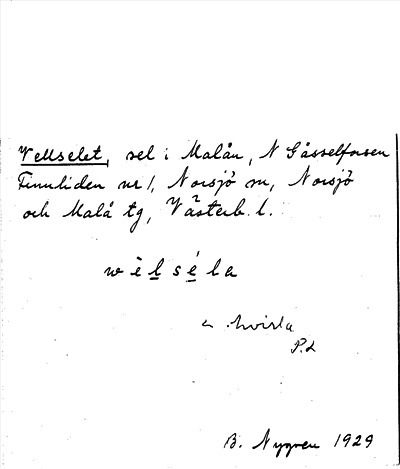 Vellselet, sel i Malån, N Gåsselforsen
Finnliden nr 1, Norsjö sn, Norsjö
och Malå tg, Västerb. l.
w è l s é l a
P.L
B. Nygren 1929